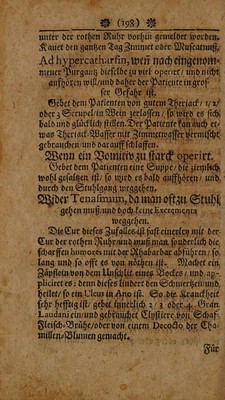 (198)
unter der rothen Ruhr vorhin gemeldet worden.
Kauet den gantzen Tag Zimmet oder Muscatnuß.
Ad hypercatharsin, weñ nach eingenom-
mener Purgantz dieselbe zu viel operrt / und nicht
aufhören will / und daher der Patiente in gros-
ser Gefahr ist.
Gebet dem Patienten von gutem Theriack / 1/2/
oder 2 Scrupel / in Wein zerlassen / so wird es sich
bald und glücklich stillen. Der Patiente kan auch et-
was Theriack-Wasser mit Zimmetwasser vermischt
gebrauchen und darauff schlaffen.
Wenn ein Vomitiv zu starck operirt.
Gebet dem Patienten eine Suppe / die ziemlich
wohl gesaltzen ist / so wird es bald aufhören / und
durch den Stuhlgang weggehen.
Wider Tenasmum, da man oft zu Stuhl
gehen muß / und doch keine Excrementa
weggehen.
Die Cur dieses Zufalles ist fast einerley mit der
Cur der rothen Ruhr / und muß man sonderlich die
scharffen humores mit der Rhabarbar abführen / so
lang und so offt es von nöthen ist. Machet ein
Zäpflein von dem Unschlit eines Bockes / und ap-
pliciert es: denn dieses lindert den Schmertzen und
heilet / so ein Ulcus in Ano ist. So die Kranckheit
sehr hefftig ist / gebet innerlich 2 / 3 oder 4. Gran.
Laudani ein / und gebrauchet Clystiere von Schaf-
Fleisch-Brühe / oder von einem Decocto der Cha-
millen-Blumen gemacht.
Für